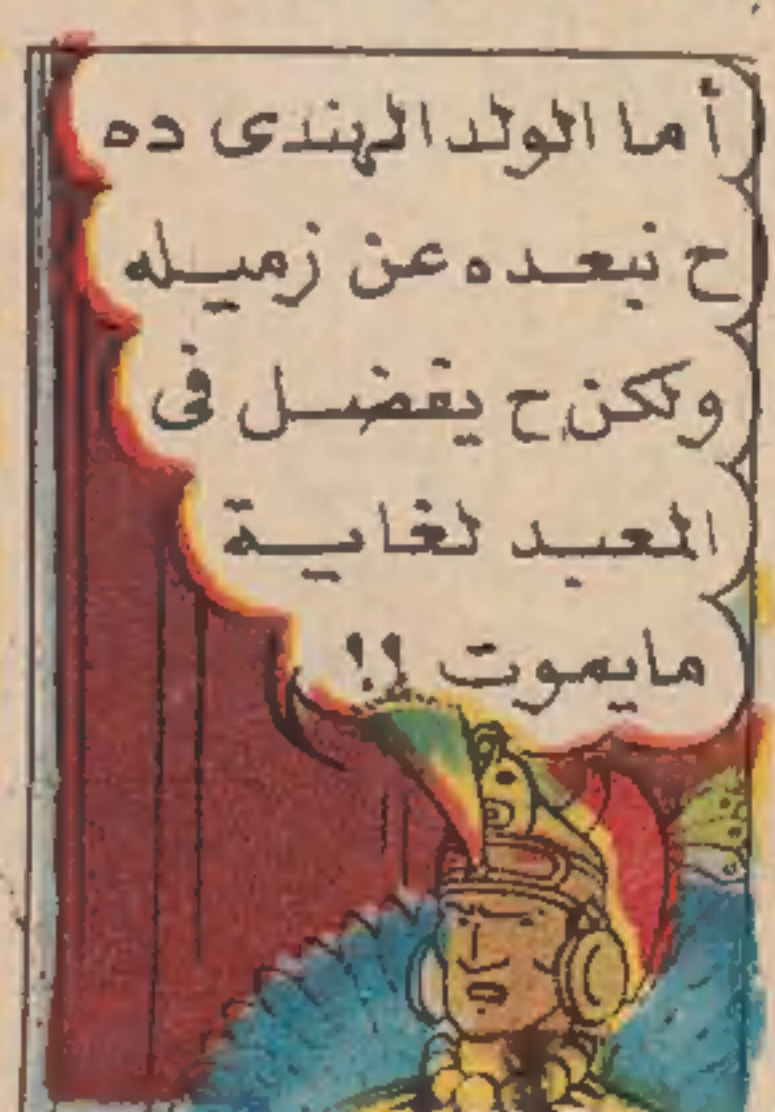 أما الولد الهندى ده
ح نبعده عن زميله
ولكن ح يفضل فى
المعبد لغاية
مايموت !!